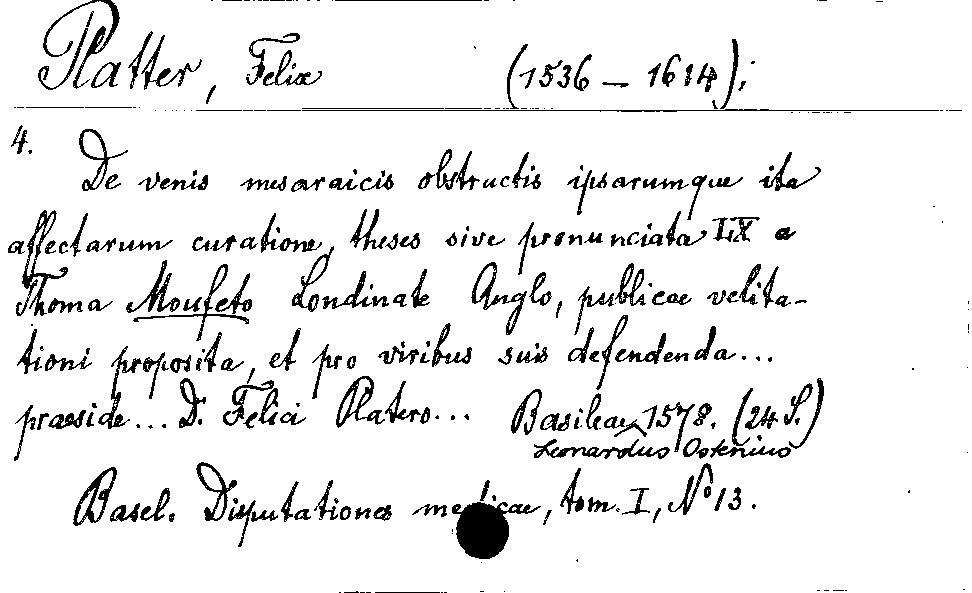 Platter, Felix (1536 – 1614);
4.
De venis mesaraicis obstructis ipsarumque ita
affectarum curatione, theses sive pronunciata LX a
Thoma Moufeto Londinate Anglo, publicae velita-
tioni proposita, et pro viribus suis defendenda...
praeside... D. Felici Platero... Basileae 1578. (24 S.)
Leonardus Ostenius
Basel. Disputationes medicae, tom. I, No 13.